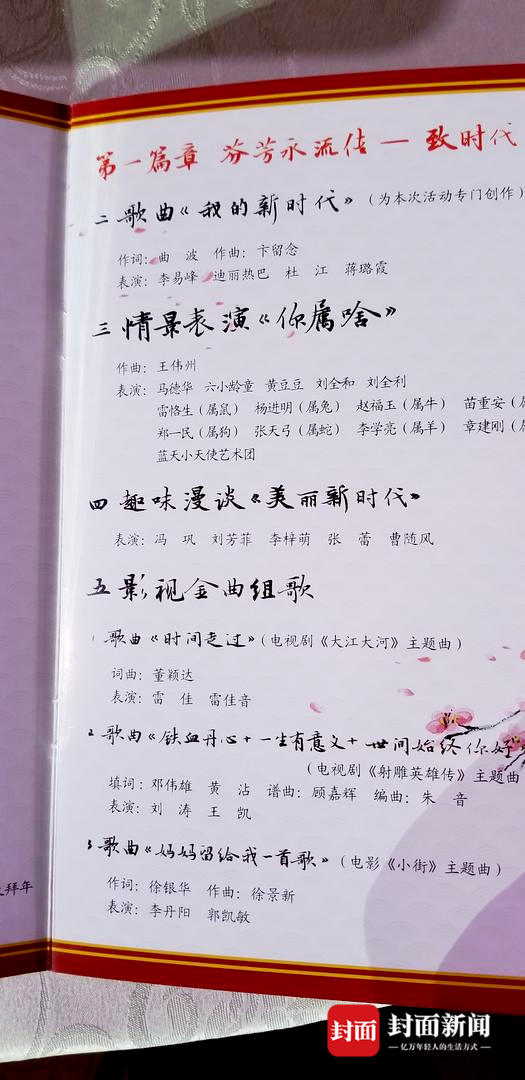 第一篇章 芬芳永流传 — 致时代
二 歌曲《我的新时代》（为本次活动专门创作）
作词：曲 波 作曲：卞留念
表演：李易峰 迪丽热巴 杜 江 蒋璐霞
三 情景表演《你属啥》
作曲：王伟州
表演：马德华 六小龄童 黄豆豆 刘全和 刘全利
雷恪生（属鼠） 杨进明（属兔） 赵福玉（属牛） 苗重安（属
郑一民（属狗） 张天弓（属蛇） 李学亮（属羊） 章建刚（属
蓝天小天使艺术团
四 趣味漫谈《美丽新时代》
表演：冯 巩 刘芳菲 李梓萌 张 蕾 曹随风
五 影视金曲组歌
1 歌曲《时间走过》（电视剧《大江大河》主题曲）
词曲：董颖达
表演：雷 佳 雷佳音
2 歌曲《铁血丹心+一生有意义+世间始终你好
（电视剧《射雕英雄传》主题曲
填词：邓伟雄 黄 沾 谱曲：顾嘉辉 编曲：朱 音
表演：刘 涛 王 凯
3 歌曲《妈妈留给我一首歌》（电影《小街》主题曲）
作词：徐银华 作曲：徐景新
表演：李丹阳 郭凯敏
拜年
封面 封面新闻
—亿万年轻人的生活方式—